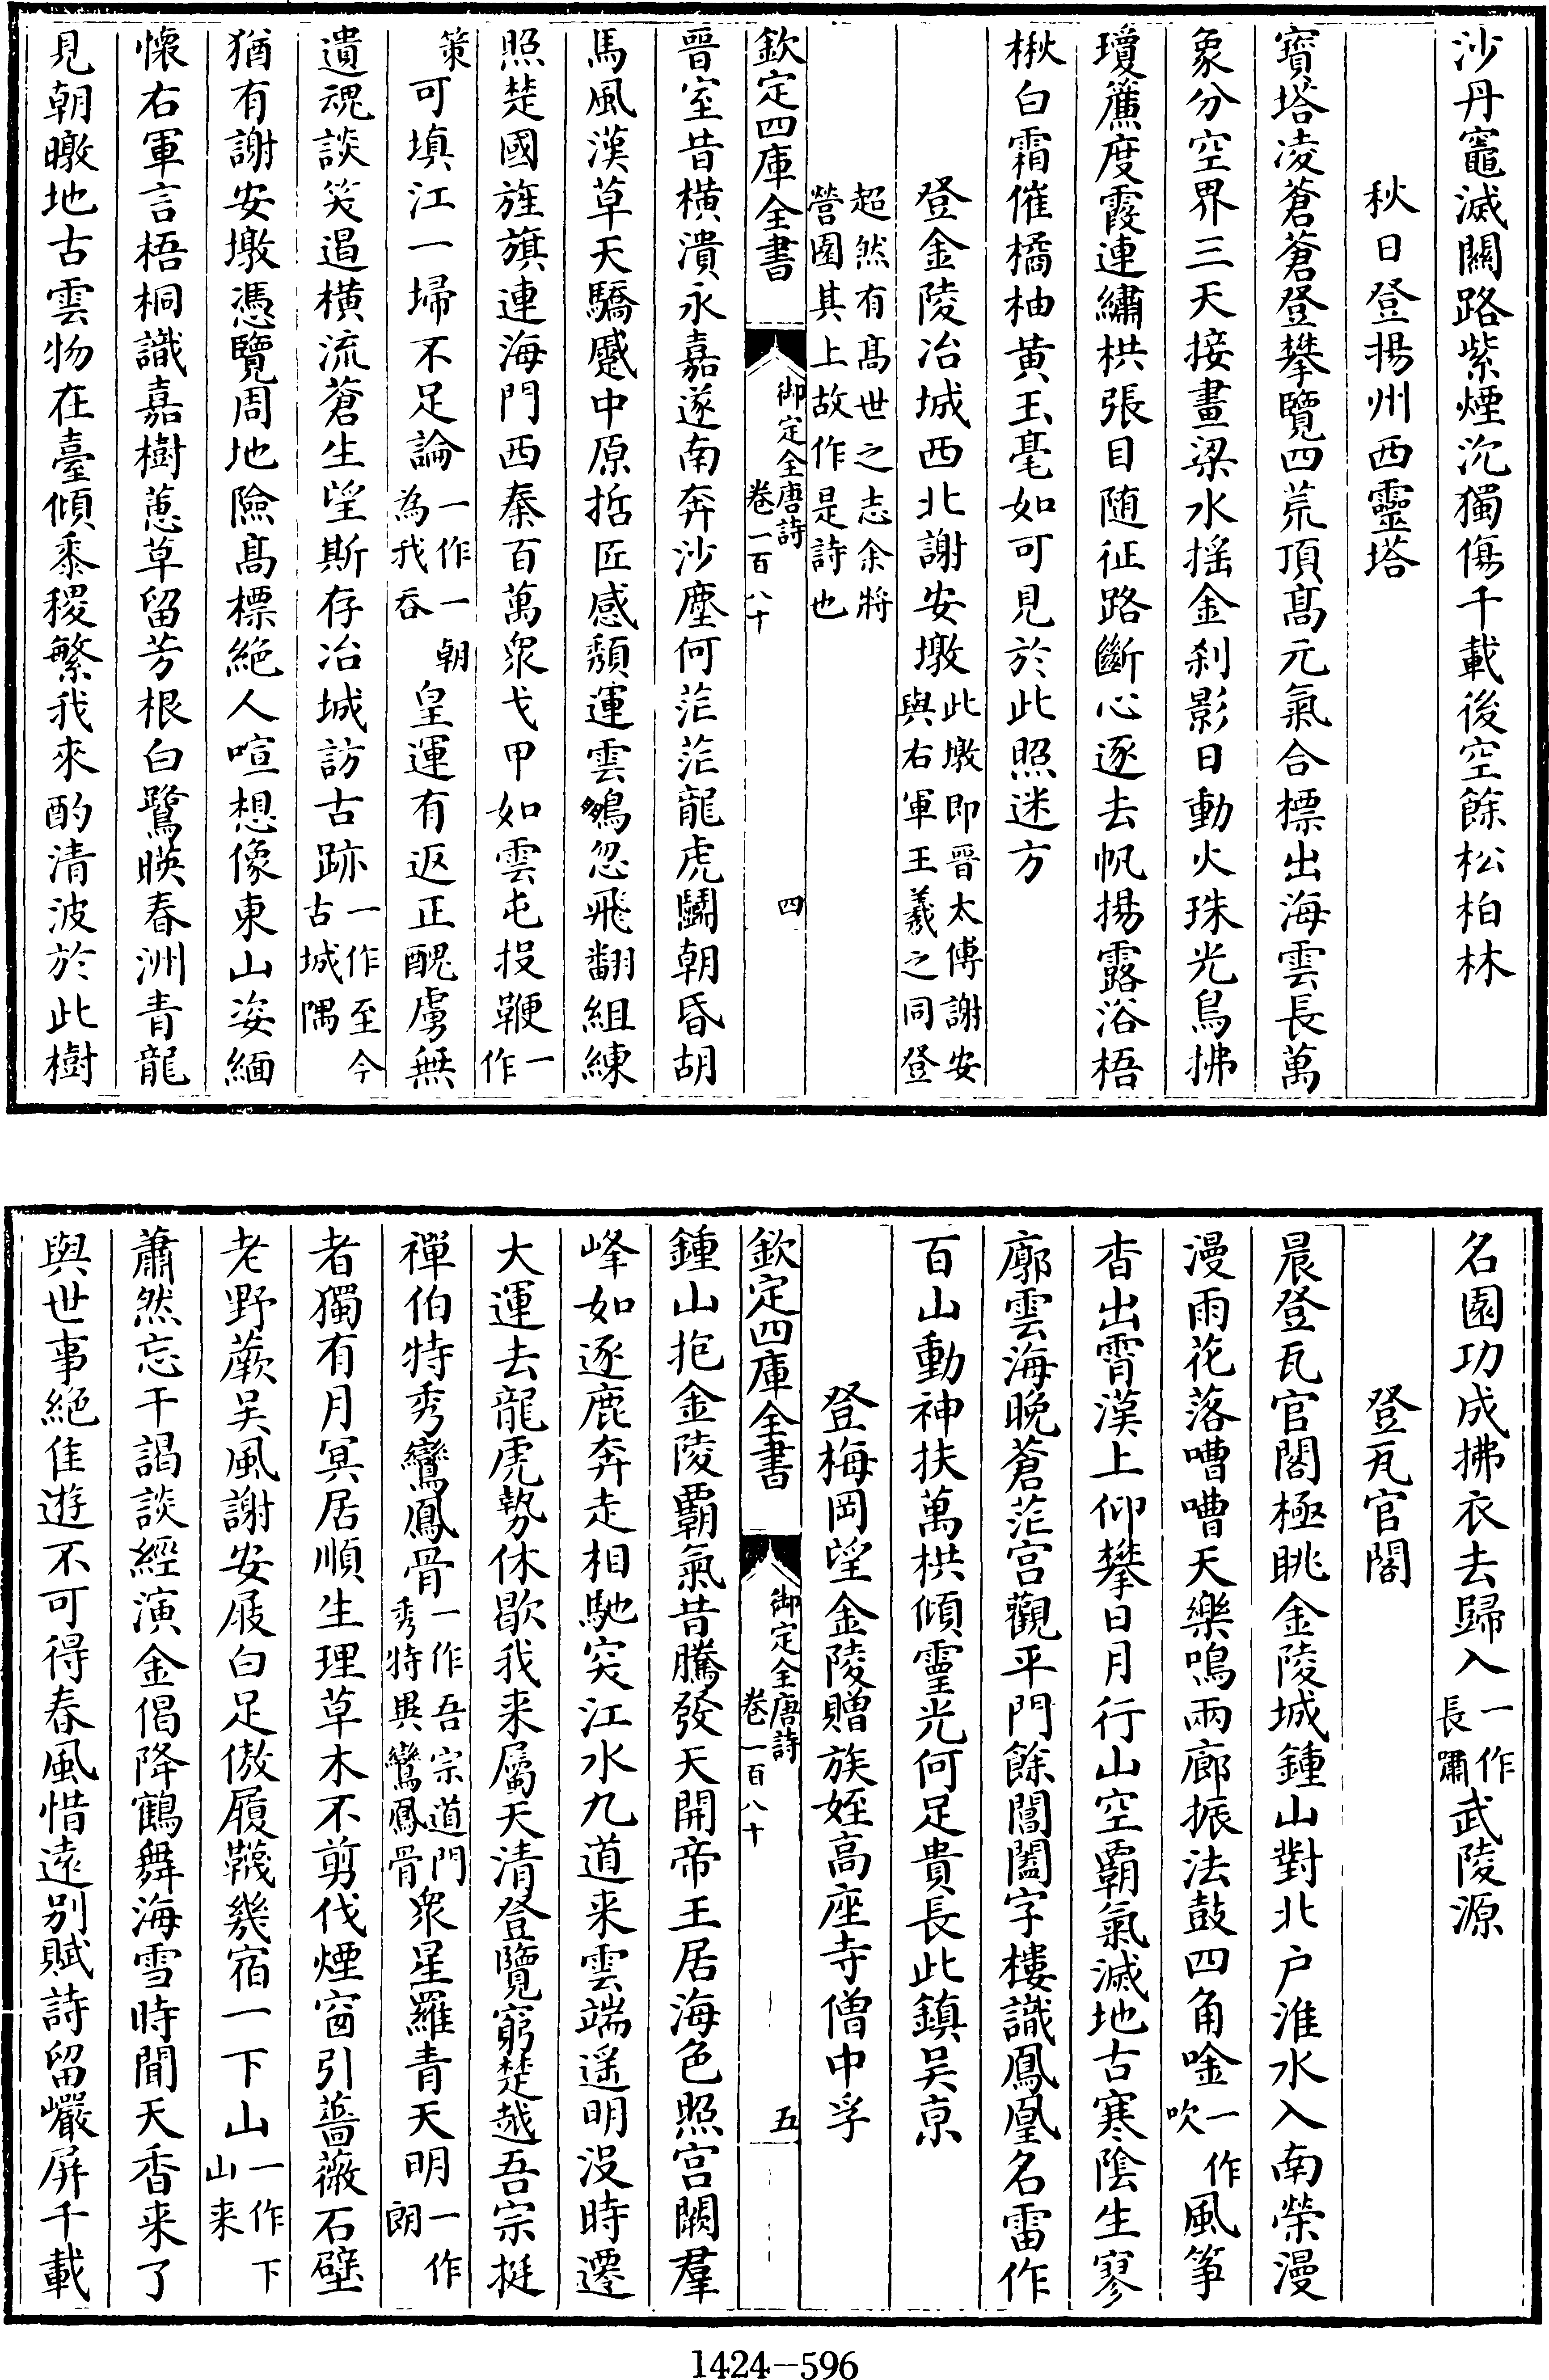 沙丹竈滅關路紫煙沉獨傷千載後空餘松柏林
秋日登揚州西靈塔
寶塔凌蒼蒼登攀覽四荒頂髙元氣合標出海雲長萬
象分空界三天接畫梁水揺金刹影日動火珠光鳥拂
瓊簷度霞連繡栱張目随征路斷心逐去帆揚露浴梧
楸白霜催橘柚黄玉毫如可見於此照迷方
登金陵冶城西北謝安墩此墩即晋太傅謝安與右軍王羲之同登
超然有髙世之志余將營園其上故作是詩也
欽定四庫全書 御定全唐詩 卷一百八十 四
晋室昔横潰永嘉遂南奔沙塵何茫茫龍虎鬬朝昏胡
馬風漢草天驕蹙中原哲匠感頽運雲鵬忽飛翻組練
照楚國旌旗連海門西秦百萬衆戈甲如雲屯投鞭一作
策可填江一掃不足論一作一朝為我吞皇運有返正醜虜無
遺魂談笑遏横流蒼生望斯存冶城訪古跡一作至今古城隅
猶有謝安墩憑覽周地險髙標絶人喧想像東山姿緬
懐右軍言梧桐識嘉樹蕙草留芳根白鷺映春洲青龍
見朝暾地古雲物在臺傾黍稷繁我來酌清波於此樹
名園功成拂衣去歸入一作長嘯武陵源
登瓦官閣
晨登瓦官閣極眺金陵城鍾山對北户淮水入南榮漫
漫雨花落嘈嘈天樂鳴兩廊振法鼓四角吟一作吹風筝
杳出霄漢上仰攀日月行山空覇氣滅地古寒陰生寥
廓雲海晚蒼茫宫觀平門餘閶闔字樓識鳳凰名雷作
百山動神扶萬栱傾靈光何足貴長此鎮吴京
登梅岡望金陵贈族姪高座寺僧中孚
欽定四庫全書 御定全唐詩 卷一百八十 五
鍾山抱金陵覇氣昔騰發天開帝王居海色照宫闕羣
峰如逐鹿奔走相馳突江水九道来雲端遥明没時遷
大運去龍虎勢休歇我来屬天清登覽窮楚越吾宗挺
禪伯特秀鸞鳳骨一作吾宗道門秀特異鸞鳳骨衆星羅青天明一作朗
者獨有月冥居順生理草木不剪伐煙窗引薔薇石壁
老野蕨吴風謝安屐白足傲履韈幾宿一下山一作下山来
蕭然忘干謁談經演金偈降鶴舞海雪時聞天香来了
與世事絶佳遊不可得春風惜逺别賦詩留巖屏千載
1424—596